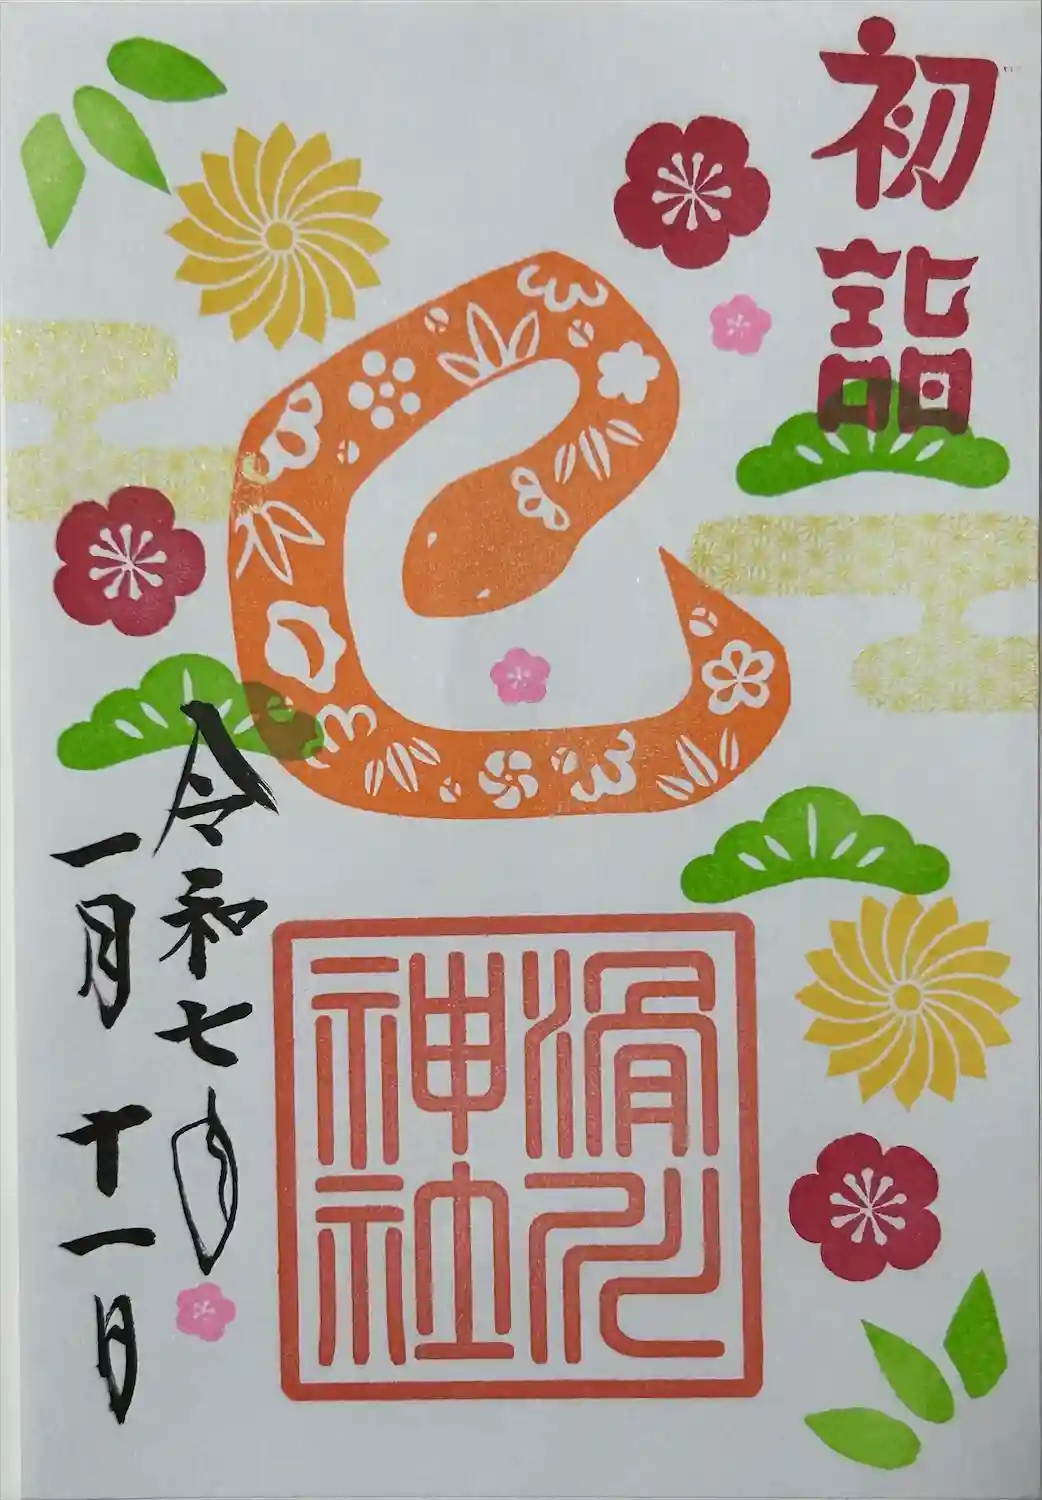 初詣
令和七年
一月十一日
滑川
神社